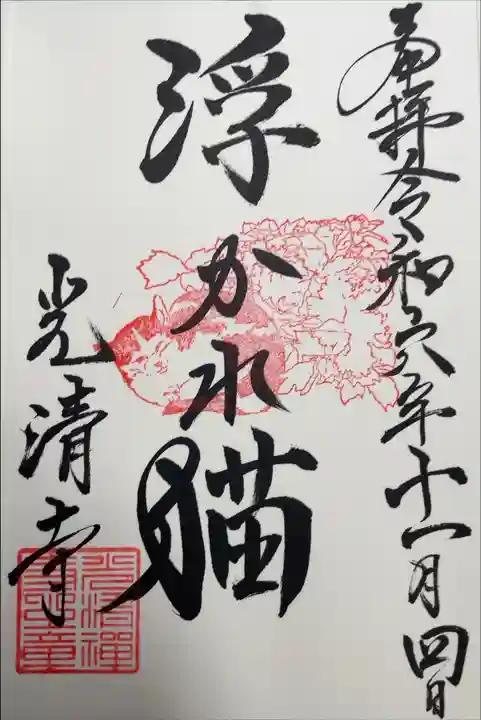 奉拝 令和六年十一月四日
浮かれ猫
光清寺